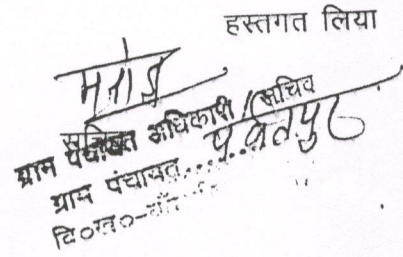 हस्तगत लिया
मनोज
सचिव
ग्राम पंचायत अधिकारी/सचिव
ग्राम पंचायत.........
वि०ख०-